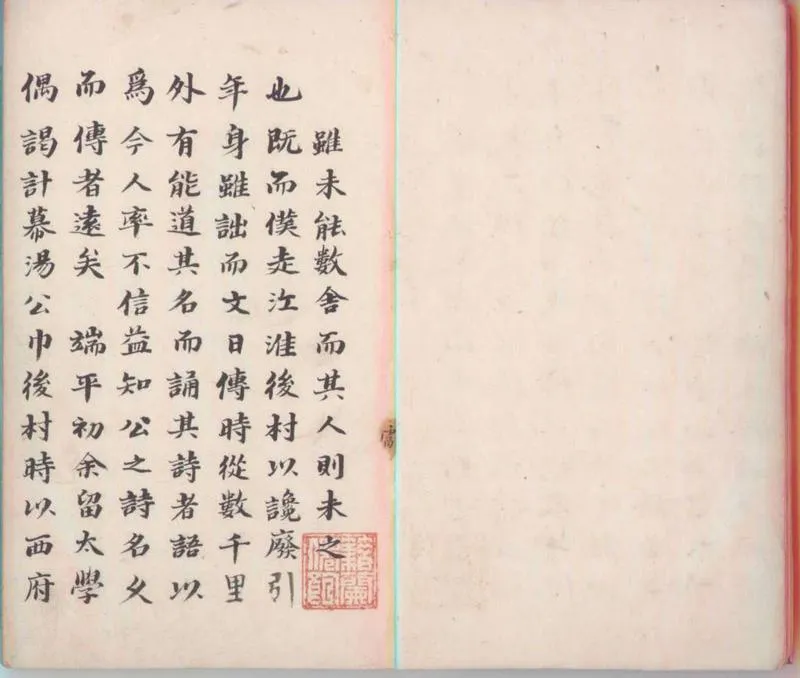 雖未能數舍而其人則未之
也既而僕走江淮後村以讒廢引
年身雖詘而文日傳時從數千里
外有能道其名而誦其詩者語以
爲今人率不信益知公之詩名久
而傳者遠矣 端平初余留太學
偶謁計幕湯公巾後村時以西府